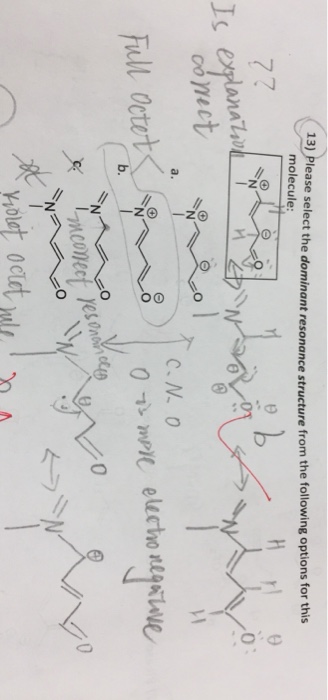 13) Please select the dominant resonance structure from the following options for this
molecule:
??
Is explanation
correct
b
a.
Full Octet
b.
C. N. O
O is more electronegative
c.
incorrect resonances
violet octet rule